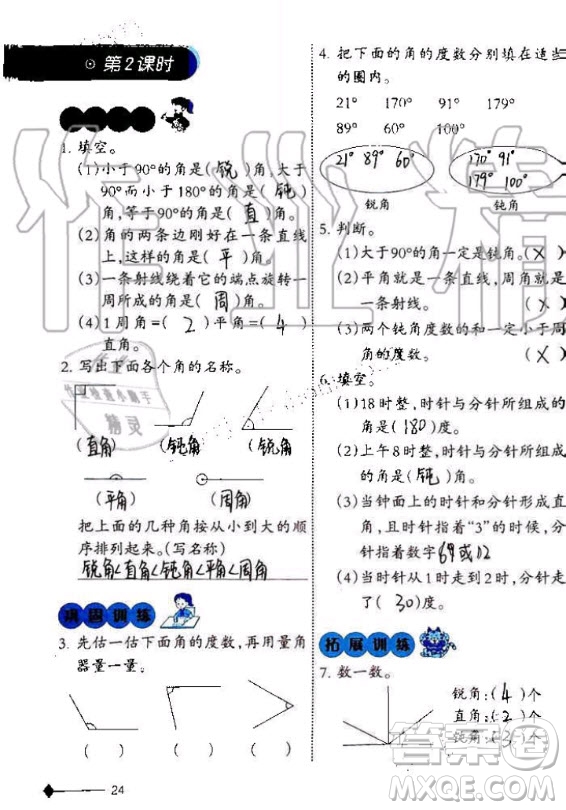 第2课时
1. 填空。
(1)小于90°的角是(锐)角,大于
90°而小于180°的角是(钝)
角,等于90°的角是(直)角。
(2)角的两条边刚好在一条直线
上,这样的角是(平)角。
(3)一条射线绕着它的端点旋转一
周所成的角是(周)角。
(4)1周角=(2)平角=(4)
直角。
2. 写出下面各个角的名称。
(直角) (钝角) (锐角)
(平角) (周角)
把上面的几种角按从小到大的顺
序排列起来。(写名称)
锐角<直角<钝角<平角<周角
巩固训练
3. 先估一估下面角的度数,再用量角
器量一量。
( ) ( ) ( )
24
4. 把下面的角的度数分别填在适当
的圈内。
21° 170° 91° 179°
89° 60° 100°
21° 89° 60°
170° 91°
179° 100°
锐角 钝角
5. 判断。
(1)大于90°的角一定是钝角。(X)
(2)平角就是一条直线,周角就是
一条射线。 (X)
(3)两个钝角度数的和一定小于周
角的度数。 (X)
6. 填空。
(1)18时整,时针与分针所组成的
角是(180)度。
(2)上午8时整,时针与分针所组成
的角是(钝)角。
(3)当钟面上的时针和分针成直角,
且时针指着“3”的时候,分
针指着数字
(4)当时针从1时走到2时,分针走
了(30)度。
拓展训练
7. 数一数。
锐角:(4)个
直角:(2)个
钝角:( )个
答案圈
MXQE.COM
作业精灵